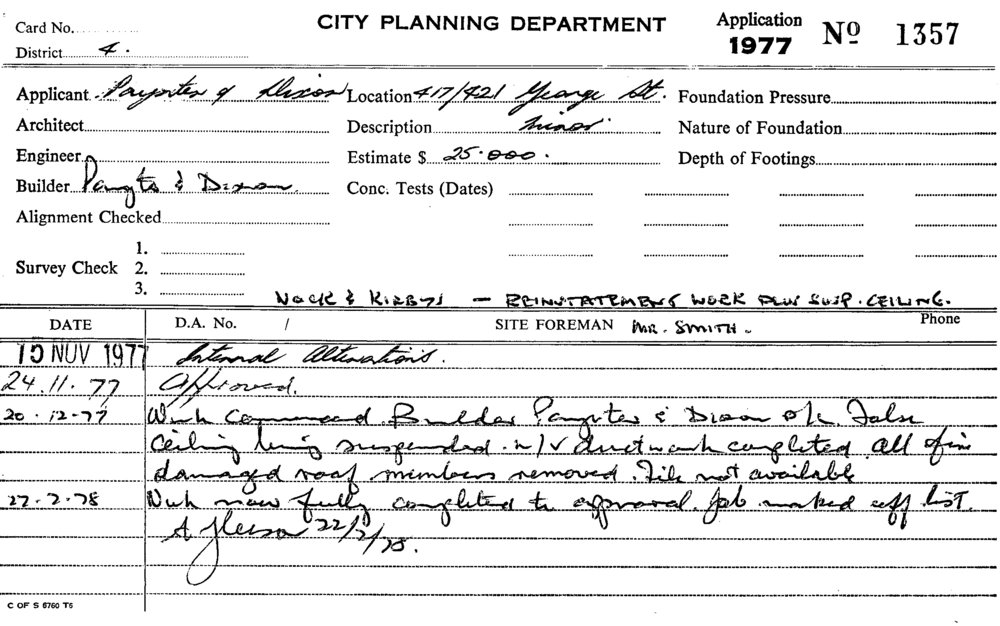 CITY PLANNING DEPARTMENT
Card No.
District 4.
Application 1977 No 1357
Applicant Paynter & Dixon Location 417/421 George St. Foundation Pressure
Architect Description minor Nature of Foundation
Engineer Estimate $ 25.000. Depth of Footings
Builder Paynte & Dixon Conc. Tests (Dates)
Alignment Checked
1.
Survey Check 2.
3.
NOCK & KIRBYS — REINSTATEMENT WORK PLUS SUSP. CEILING.
DATE D.A. No. / SITE FOREMAN MR. SMITH. Phone
15 NOV 1977 Internal Alterations.
24.11.77 Approved.
20.12.77 Work commenced. Builder Paynter & Dixon o/k. False
Ceiling being suspended. m/v ductwork completed. All fire
damaged roof members removed. File not available
22.2.78 Work now fully completed to approval. Job marked off list.
22/2/78.
C OF S 6760 T5